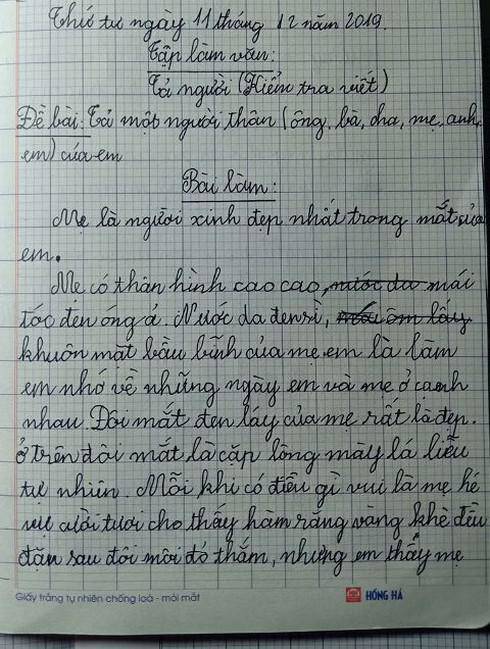 Thứ tư ngày 11 tháng 12 năm 2019.
Tập làm văn:
Tả người (Kiểm tra viết)
Đề bài: Tả một người thân (ông, bà, cha, mẹ, anh,
em) của em
Bài làm:
Mẹ là người xinh đẹp nhất trong mắt của
em.
Mẹ có thân hình cao cao, nước da mái
tóc đen óng ả. Nước da đen sì,
khuôn mặt bầu bĩnh của mẹ em là làm
em nhớ về những ngày em và mẹ ở cạnh
nhau. Đôi mắt đen láy của mẹ rất là đẹp.
Ở trên đôi mắt là cặp lông mày lá liễu
tự nhiên. Mỗi khi có điều gì vui là mẹ hé
cười tươi cho thấy hàm răng vàng khè đều
đặn sau đôi môi đỏ thắm, nhưng em thấy mẹ
Giấy trắng tự nhiên chống loá - mỏi mắt
HỒNG HÀ